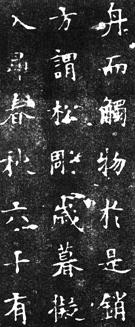 舟而觸物於是銷
方謂松彫歲暮擬
入春秋六十有